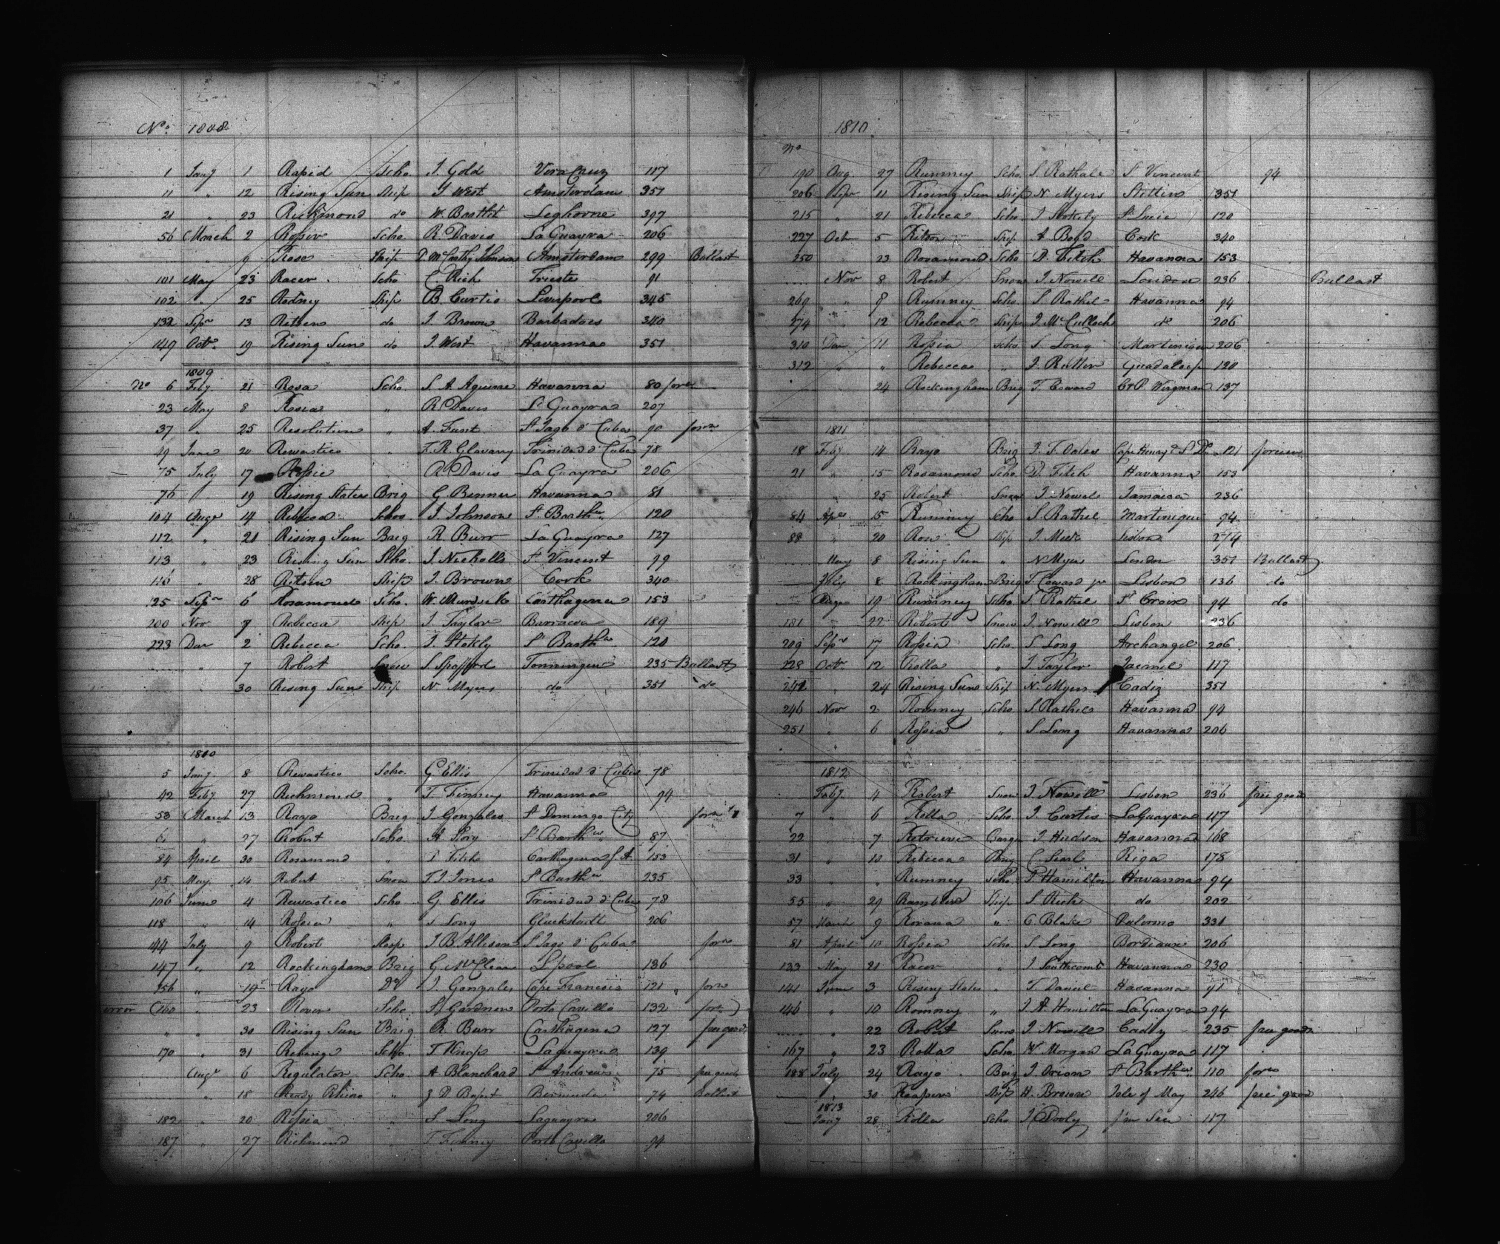 No. 1808
1 Jany 1 Rapid Scho. J. Gold Vera Cruz 117
11 " 12 Rising Sun Ship J. West Amsterdam 351
21 " 23 Richmond do W. Bartlet Leghorne 397
56 March 2 Rosier Scho R. Davis La Guayra 206
" 9 Rose Ship Amsterdam 299 Ballast
101 May 23 Racer Scho C. Rich Trieste 91
102 " 25 Rodney Ship B. Curtis Liverpool 345
132 Sepr 13 Retson do J. Brown Barbadoes 340
149 Octr 19 Rising Sun do J. West Havanna 351
1809
No 6 Feby 21 Rosa Scho. S. A. Aguirre Havanna 80 forn
23 May 8 Rossia " R. Davis La Guayra 207
37 " 25 Resolution " A. Fant St Jago d' Cuba 90 forn
49 June 20 Rewastico F. R. Glavany Trinidad d' Cuba 78
75 July 17 Rossie R. Davis La Guayra 206
76 19 Rising States Brig G. Benner Havanna 81
104 Augt 14 Rebecca Schoo. J. Johnson St Barths 120
112 " 21 Rising Sun Brig R. Burr La Guayra 127
113 " 23 Rising Sun Scho. J. Nicholls St Vincent 99
116 " 28 Ritson Ship J. Brown Cork 340
125 Sepr 6 Rosamond Scho. W. Murdick Carthagena 153
200 Nov 7 Rebecca Ship J. Taylor Barracoa 189
223 Der 2 Rebecca Scho. J. Stokely St Barths 120
" 7 Robert Snow S. Spafford Tonningen 235 Ballast
" 30 Rising Sun Ship N. Myers do 351 do
1810
5 Jany 8 Rewastico Scho. G Ellis Trinidad d' Cuba 78
42 Feby 27 Richmond " T. Finney Havanna 94
53 March 13 Rayo Brig J. Gonzales St Domingo City forn
27 Robert Scho. St Barths 87
84 April 30 Rosamond " Fitch Carthagena 153
95 May 14 Robert Snow T. J. Jones St Barths 235
106 June 4 Rewastico Scho G. Ellis Trinidad d' Cuba 78
118 " 14 Rossia " S Long Gluckstadt 206
144 July 9 Robert Sloop J. B. Allison St Jago d' Cuba forn
147 " 12 Rockingham Brig G. McClean Lpool 136
156 " 19 Rayo Do J. Gonzales Cape Francois 121 forn
error 160 " 23 Rover Scho. J. Gardner Porto Cavillo 132 forn
" " 30 Rising Sun Brig R. Burr Carthagena 127 free goods
170 " 31 Revenge Scho. T. Knap Laguayra 139
Augt 6 Regulator Scho. A Blanchard St Andreas 75 free goods
" 18 Ready Rhino Bermuda 74 Ballast
182 " 20 Rossia " S. Long Laguayra 206
187 " 27 Richmond " T Finney Porto Cavillo 94
1810
No
190 Aug 27 Rumney Scho. S. Rathale St Vincent 94
206 Sepr 11 Rising Sun Ship N. Myers Stettin 351
215 " 21 Rebecca Scho. J Stokely St Lucie 120
227 Oct 5 Ritson Ship A Boyd Cork 340
250 " 23 Rosamond Scho D. Fitch Havanna 153
Nov 8 Robert Snow J. Nowell London 236 Ballast
269 " 8 Rumney Scho. S. Rathel Havanna 94
274 " 12 Rebecca Ship J. McCulloch do 206
310 Der 11 Rossia Scho S. Long Martinique 206
312 " " Rebecca " J. Rutter Guadalup 120
24 Rockingham Brig T. Coward 137
1811
18 Feby 14 Rayo Brig 121 foreign
21 " 15 Rosamond Scho D. Fitch Havanna 153
25 Robert Snow J. Nowel Jamaica 236
84 Apr 15 Rumney Scho S. Rathel Martinique 94
88 " 20 Rose Ship J. Meek Lisbon 274
May 8 Rising Sun " N Myers London 351 Ballast
July 8 Rockingham Brig T. Coward jr Lisbon 136 do
Augt 19 Rumney Scho S. Rathel St Croix 94 do
181 " 22 Robert Snow J. Nowell Lisbon 236
209 Sepr 17 Rossia Scho. S. Long Archangel 206
228 Oct 12 Rolla " J Taylor Jacmel 117
242 " 24 Rising Sun Ship N. Myers Cadiz 351
246 Nov 2 Romney Scho S. Rathel Havanna 94
251 " 6 Rossia " S. Long Havanna 206
1812
Feby 4 Robert Snow J. Nowell Lisbon 236 free goods
7 " 6 Rolla Scho. J. Curtis LaGuayra 117
22 " 7 Retrieve J Hudson Havanna 168
31 " 10 Rebecca Brig C. Seart Riga 175
33 " " Rumney Scho J. Hamilton Havanna 94
55 " 29 Rambler Ship S. Rich do 202
57 March 9 Roxana " C. Blake Palermo 331
81 April 10 Rossia Scho. S. Long Bordeaux 206
133 May 21 Racer " J Southcomb Havanna 230
141 June 3 Rising States " T. Daniel Havanna 91
146 " 10 Romney " J. A. Hamilton La Guayra 94
" 22 Robert Snow J. Nowell Cadiz 235 free goods
167 " 23 Rolla Scho W. Morgan La Guayra 117
188 July 24 Rayo Brig J. Orion St Barths 110 forn
" 30 Reaper Ship H. Brown Isle of May 246 free goods
1813
Jany 28 Rolla Scho J Dooly 117